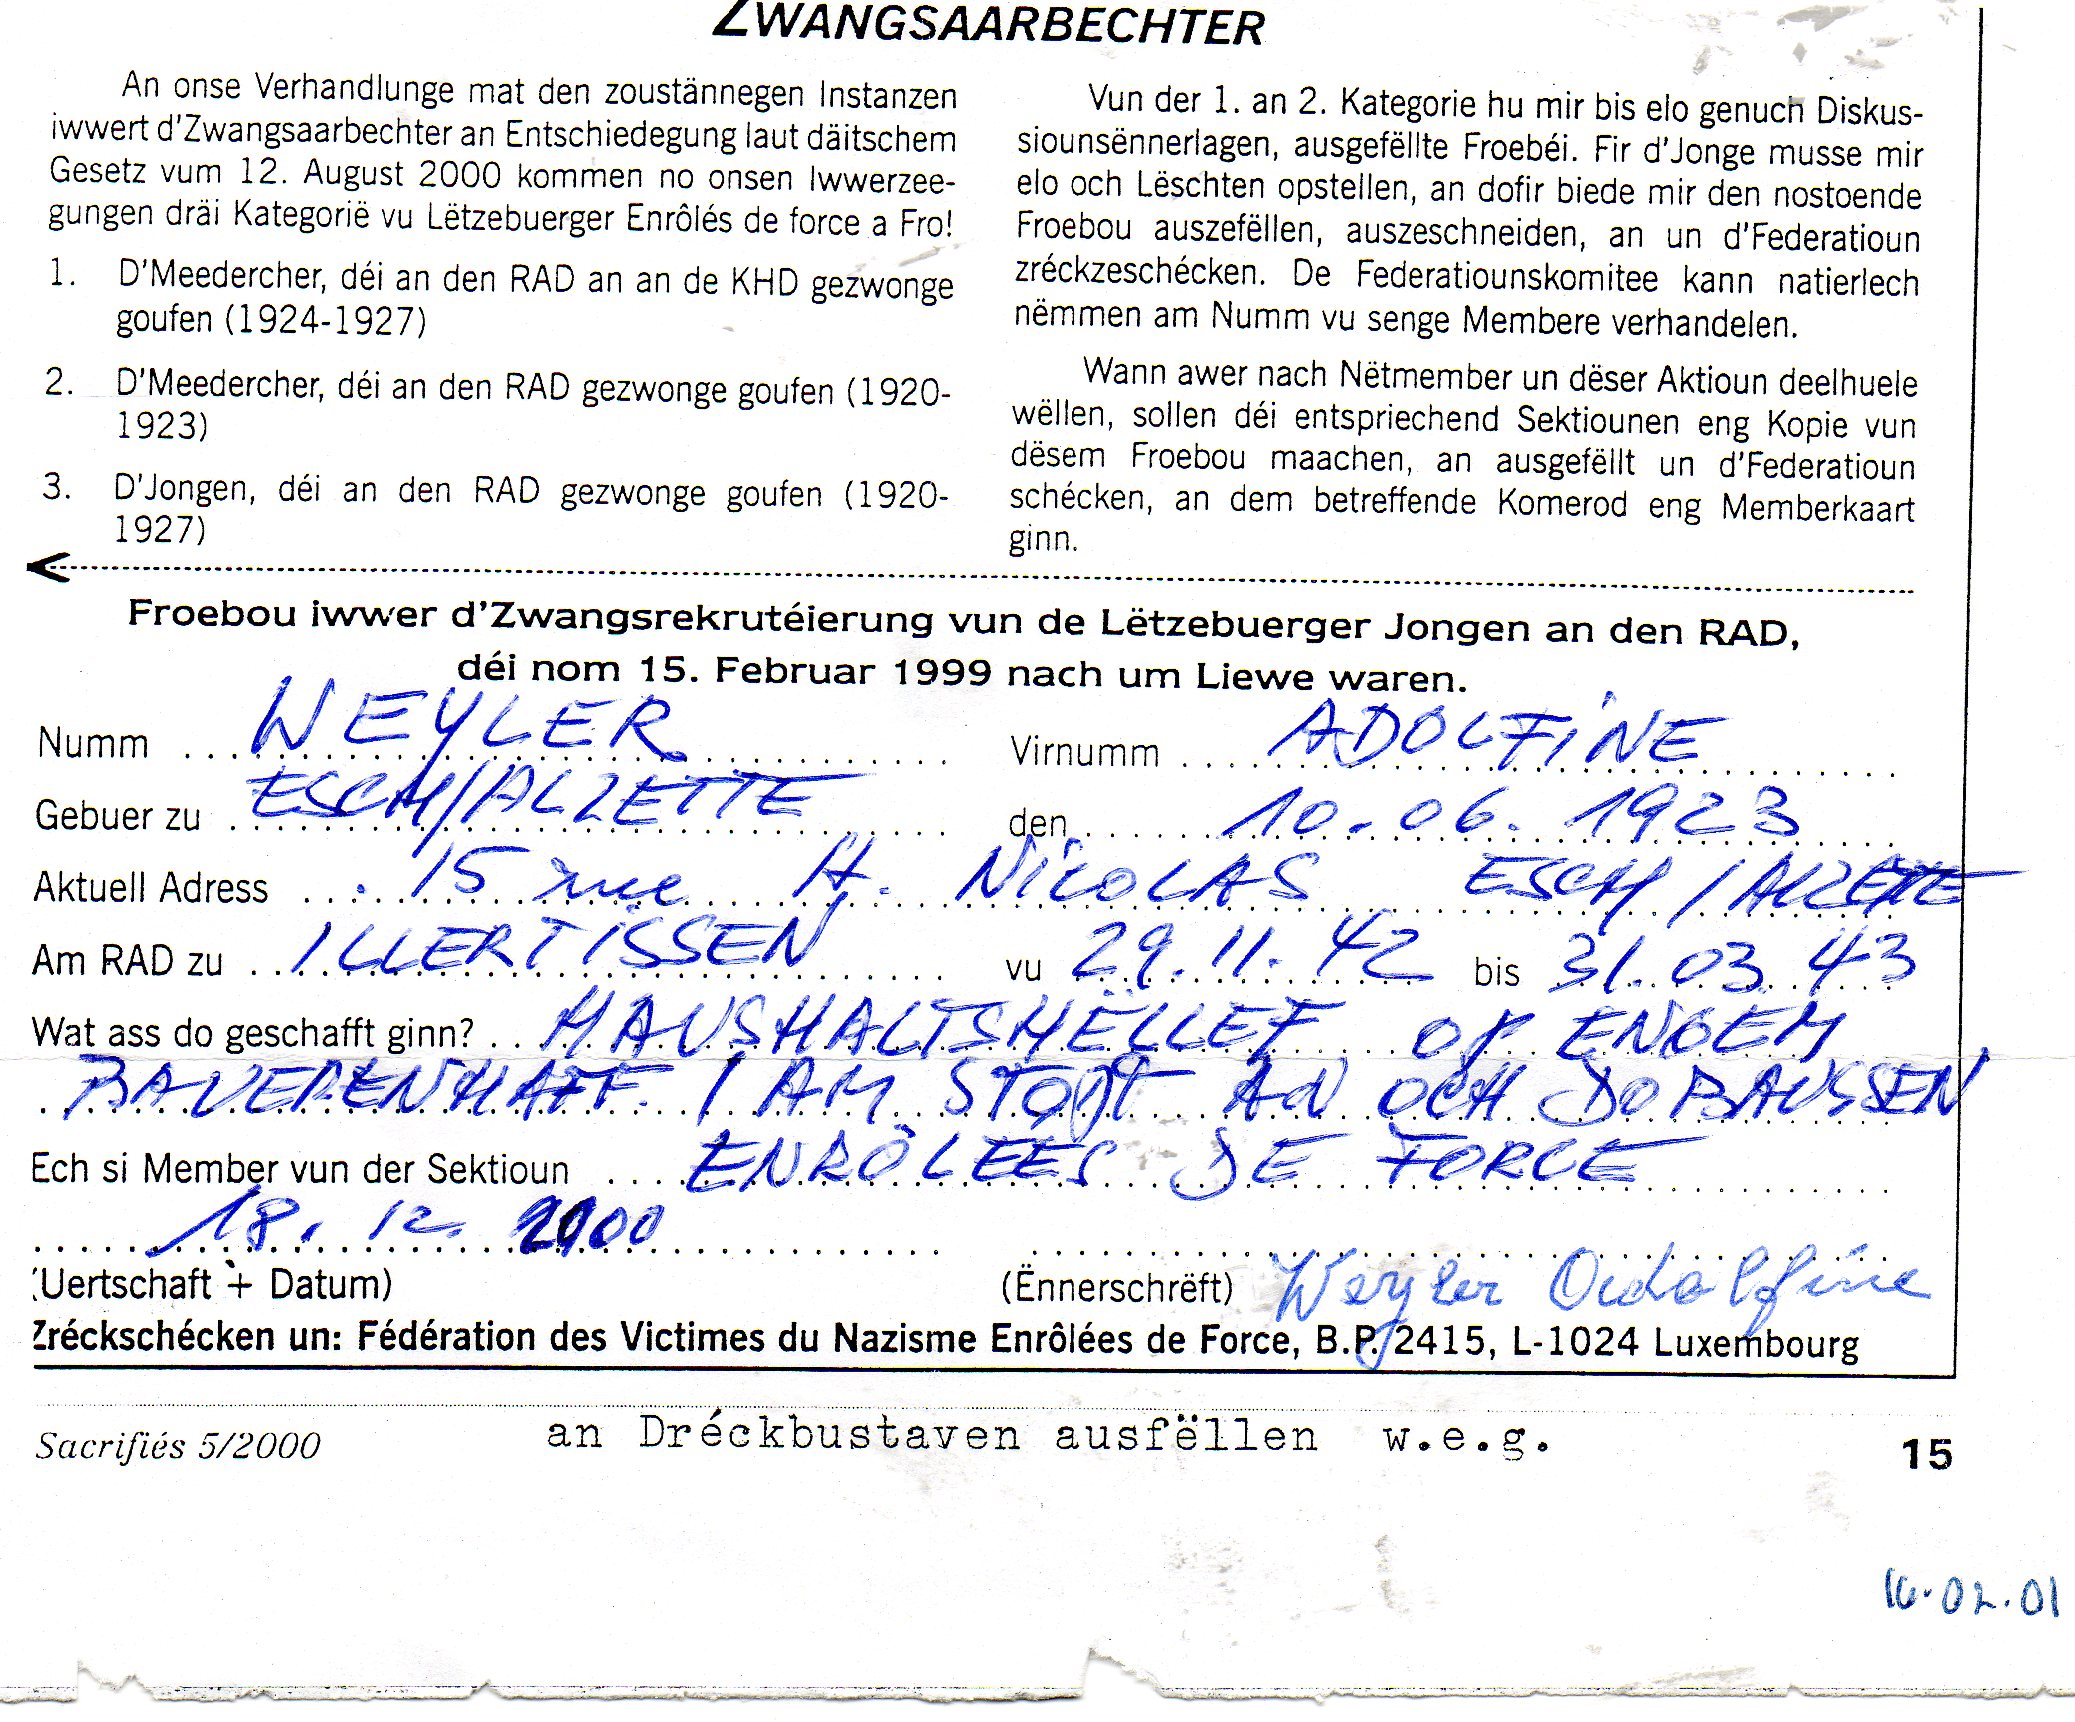 ZWANGSAARBECHTER
An onse Verhandlunge mat den zoustännegen Instanzen
iwwert d'Zwangsaarbechter an Entschiedegung laut däitschem
Gesetz vum 12. August 2000 kommen no onsen Iwwerzee-
gungen dräi Kategorië vu Lëtzebuerger Enrôlés de force a Fro!
1. D'Meedercher, déi an den RAD an an de KHD gezwonge
goufen (1924-1927)
2. D'Meedercher, déi an den RAD gezwonge goufen (1920-
1923)
3. D'Jongen, déi an den RAD gezwonge goufen (1920-
1927)
Vun der 1. an 2. Kategorie hu mir bis elo genuch Diskus-
siounsënnerlagen, ausgefëllte Froebéi. Fir d'Jonge musse mir
elo och Lëschten opstellen, an dofir biede mir den nostoende
Froebou auszefëllen, auszeschneiden, an un d'Federatioun
zréckzeschécken. De Federatiounskomitee kann natierlech
nëmmen am Numm vu senge Membere verhandelen.
Wann awer nach Nëtmember un dëser Aktioun deelhuele
wëllen, sollen déi entspriechend Sektiounen eng Kopie vun
dësem Froebou maachen, an ausgefëllt un d'Federatioun
schécken, an dem betreffende Komerod eng Memberkaart
ginn.
Froebou iwwer d'Zwangsrekrutéierung vun de Lëtzebuerger Jongen an den RAD,
déi nom 15. Februar 1999 nach um Liewe waren.
Numm WEYLER Virnumm ADOLFINE
Gebuer zu ESCH/ALZETTE den 10.06.1923
Aktuell Adress 15 rue H. NICOLAS ESCH/ALZETTE
Am RAD zu ILLERTISSEN vu 29.11.42 bis 31.03.43
Wat ass do geschafft ginn? HAUSHALTSHËLLEF OP ENGEM
BAUERENHAFF / AM STODT AN OCH DOBAUSSEN
Ech si Member vun der Sektioun ENRÔLÉES DE FORCE
18.12.2000
(Uertschaft + Datum) (Ënnerschrëft) Weyler Adolfine
Zréckschécken un: Fédération des Victimes du Nazisme Enrôlées de Force, B.P. 2415, L-1024 Luxembourg
Sacrifiés 5/2000 an Dréckbustaven ausfëllen w.e.g. 15
16.02.01